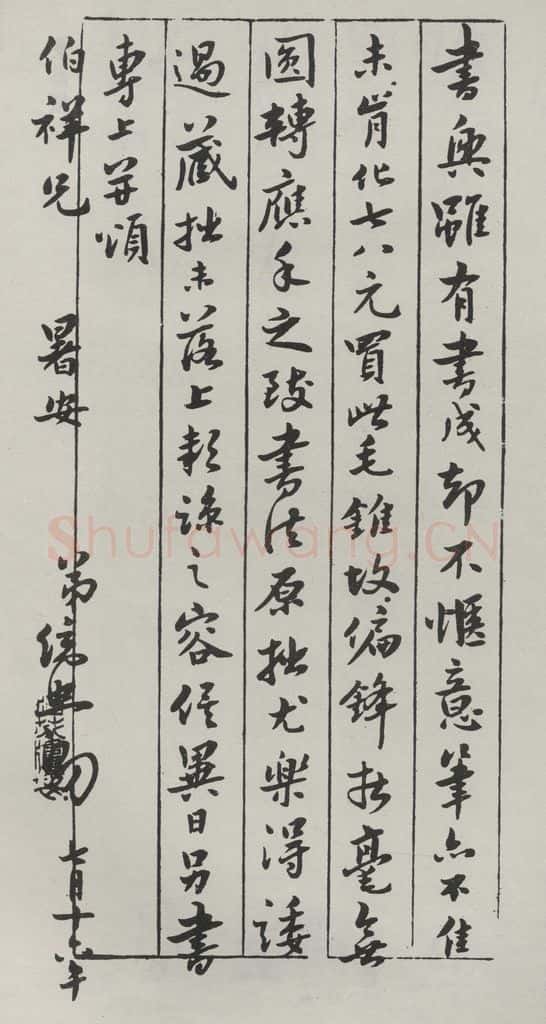 書興雖有書成却不愜意筆亦不佳
未肯化七八元買此毛錐故偏鋒拙毫無
圓轉應手之致書法原拙尤樂得諉
過藏拙未落上款諒之容俟異日另書
專上并頌
伯祥兄 暑安 弟 七月十六午
Shufawang.CN